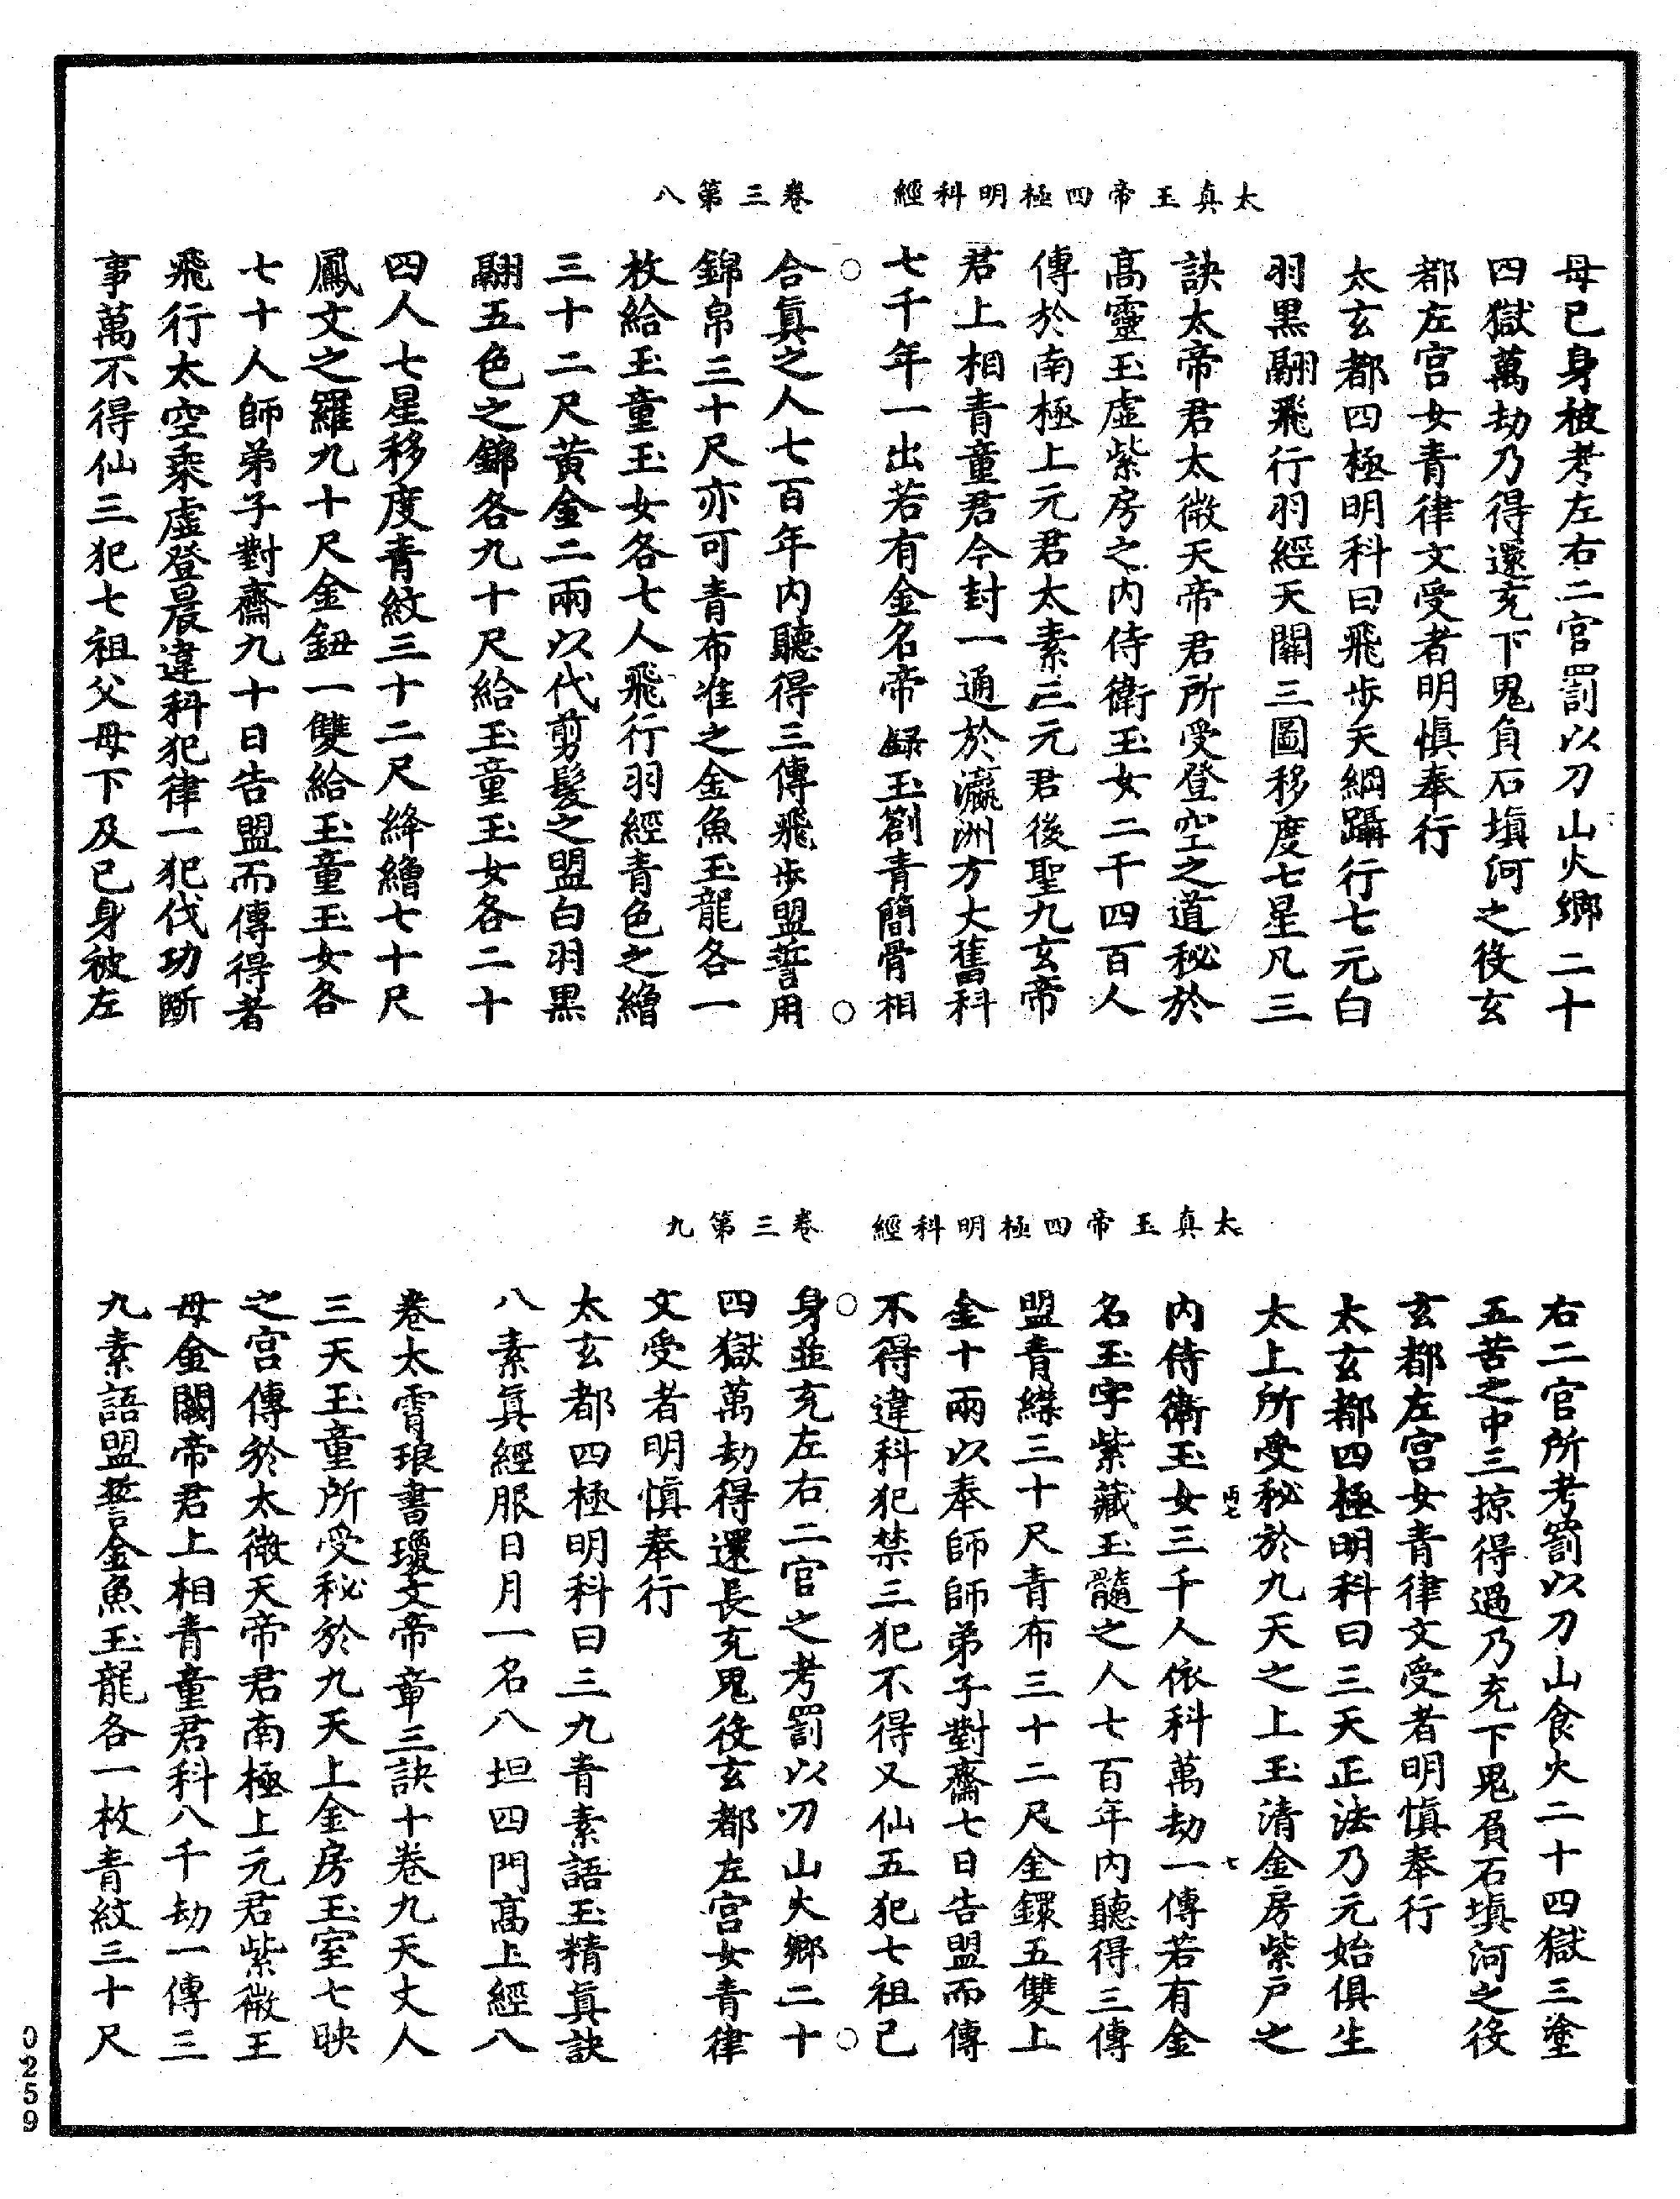 太真玉帝四極明科經　卷三第八
母已身被考左右二官罰以刀山火鄉二十
四獄萬劫乃得還充下鬼負石塡河之役玄
都左宮女青律文受者明愼奉行
太玄都四極明科曰飛步天綱躡行七元白
羽黑翮飛行羽經天關三圖移度七星凡三
訣太帝君太微天帝君所受登空之道祕於
高靈玉虛紫房之內侍衛玉女二千四百人
傳於南極上元君太素三元君後聖九玄帝
君上相青童君今封一通於瀛洲方大舊科
七千年一出若有金名帝錄玉劄青簡骨相
合眞之人七百年內聽得三傳飛步盟誓用
錦帛三十尺亦可青布准之金魚玉龍各一
枚給玉童玉女各七人飛行羽經青色之繒
三十二尺黃金二兩以代剪髮之盟白羽黑
翮五色之錦各九十尺給玉童玉女各二十
四人七星移度青紋三十二尺絳繒七十尺
鳳文之羅九十尺金鈕一雙給玉童玉女各
七十人師弟子對齋九十日告盟而傳得者
飛行太空乘虛登晨違科犯律一犯伐功斷
事萬不得仙三犯七祖父母下及己身被左
太真玉帝四極明科經　卷三第九
右二官所考罰以刀山食火二十四獄三塗
五苦之中三掠得過乃充下鬼負石塡河之役
玄都左宮女青律文受者明愼奉行
太玄都四極明科曰三天正法乃元始俱生
太上所受祕於九天之上玉清金房紫戶之
內侍衛玉女三千人依科萬劫一傳若有金
名玉字紫藏玉髓之人七百年內聽得三傳
盟青緤三十尺青布三十二尺金鐶五雙上
金十兩以奉師師弟子對齋七日告盟而傳
不得違科犯禁三犯不得又仙五犯七祖己
身並充左右二官之考罰以刀山火鄉二十
四獄萬劫得還長充鬼役玄都左宮女青律
文受者明愼奉行
太玄都四極明科曰三九青素語玉精眞訣
八素眞經服日月一名八坦四門高上經八
卷太霄琅書瓊文帝章三訣十卷九天丈人
三天玉童所受祕於九天上金房玉室七映
之宮傳於太微天帝君南極上元君紫微王
母金闕帝君上相青童君科八千劫一傳三
九素語盟誓金魚玉龍各一枚青紋三十尺
0259